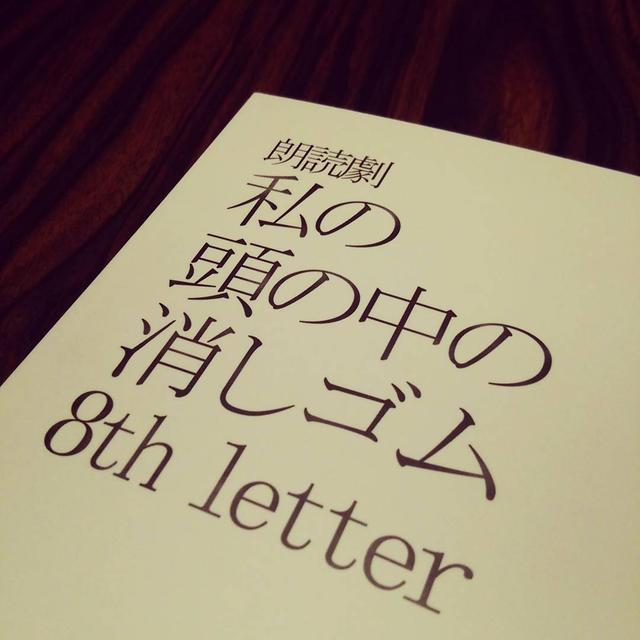 朗読劇
私の
頭の中の
消しゴム
8th letter